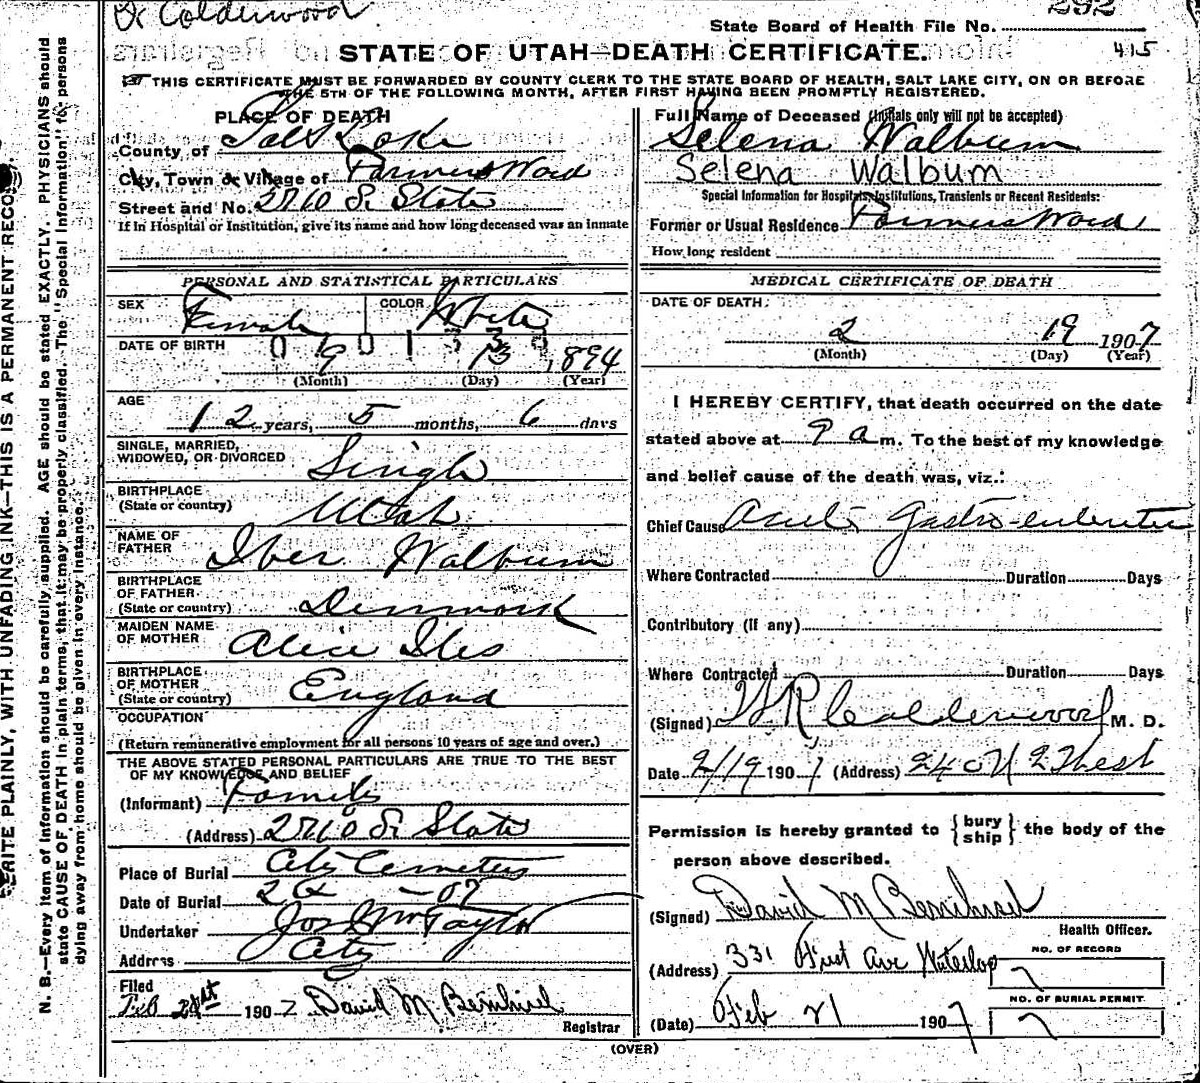 Dr Calderwood.
State Board of Health File No. 292
STATE OF UTAH—DEATH CERTIFICATE.
415
THIS CERTIFICATE MUST BE FORWARDED BY COUNTY CLERK TO THE STATE BOARD OF HEALTH, SALT LAKE CITY, ON OR BEFORE
THE 5TH OF THE FOLLOWING MONTH, AFTER FIRST HAVING BEEN PROMPTLY REGISTERED.
PLACE OF DEATH
County of Salt Lake
City, Town or Village of Farmers Ward
Street and No. 2760 S. State
If in Hospital or Institution, give its name and how long deceased was an inmate
Full Name of Deceased (Initials only will not be accepted)
Selena Walbum
Selena Walbum
Special Information for Hospitals, Institutions, Transients or Recent Residents:
Former or Usual Residence Farmers Ward
How long resident
PERSONAL AND STATISTICAL PARTICULARS
SEX Female
COLOR White
DATE OF BIRTH 9 13 1894
(Month) (Day) (Year)
AGE
12 years, 5 months, 6 days
SINGLE, MARRIED,
WIDOWED, OR DIVORCED Single
BIRTHPLACE
(State or country) Utah
NAME OF
FATHER Iber Walbum
BIRTHPLACE
OF FATHER
(State or country) Denmark
MAIDEN NAME
OF MOTHER Alice Iles
BIRTHPLACE
OF MOTHER
(State or country) England
OCCUPATION
(Return remunerative employment for all persons 10 years of age and over.)
THE ABOVE STATED PERSONAL PARTICULARS ARE TRUE TO THE BEST
OF MY KNOWLEDGE AND BELIEF
(Informant) Family
(Address) 2760 S. State
Place of Burial City Cemetery
Date of Burial - 07
Undertaker Jos Wm Taylor
Address City
Filed
Feb 21st 1907 David M. Bernhisel
Registrar
MEDICAL CERTIFICATE OF DEATH
DATE OF DEATH:
2 19 1907
(Month) (Day) (Year)
I HEREBY CERTIFY, that death occurred on the date
stated above at 9 a m. To the best of my knowledge
and belief cause of the death was, viz.:
Chief Cause Acute Gastro-enteritis
Where Contracted Duration Days
Contributory (if any)
Where Contracted Duration Days
(Signed) W R Calderwood M. D.
Date 2/19 1907 (Address)
Permission is hereby granted to {bury
ship} the body of the
person above described.
(Signed) David M Bernhisel
Health Officer.
(Address) 331 First Ave Waterloo
NO. OF RECORD
7
NO. OF BURIAL PERMIT
7
(Date) Feb 21 1907
(OVER)
WRITE PLAINLY, WITH UNFADING INK—THIS IS A PERMANENT RECORD.
N. B.—Every item of information should be carefully supplied. AGE should be stated EXACTLY. PHYSICIANS should
state CAUSE OF DEATH in plain terms, that it may be properly classified. The "Special Information" for persons
dying away from home should be given in every instance.